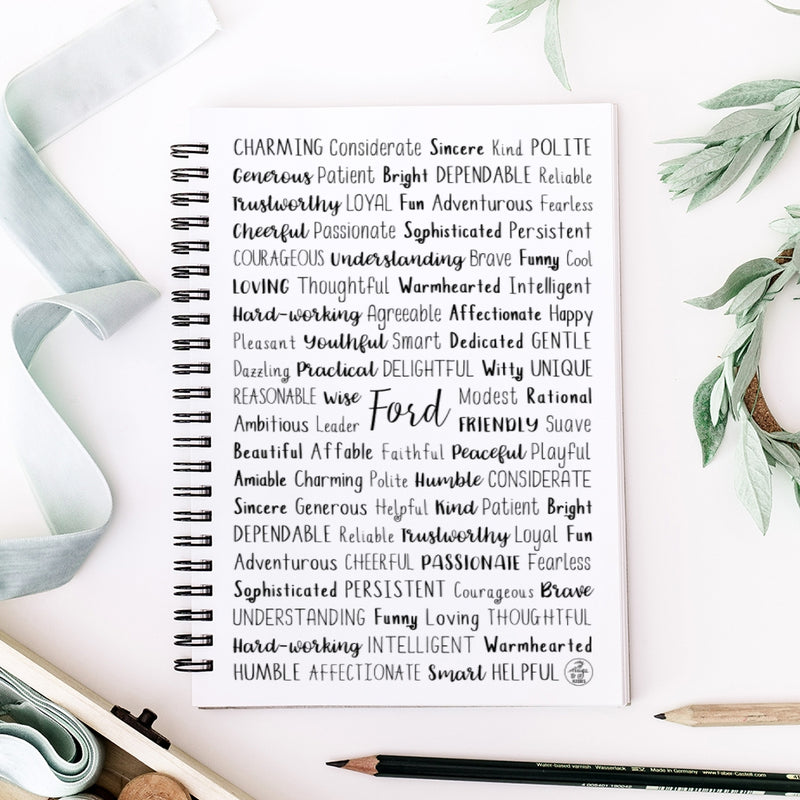 CHARMING Considerate Sincere Kind POLITE
Generous Patient Bright DEPENDABLE Reliable
Trustworthy LOYAL Fun Adventurous Fearless
Cheerful Passionate Sophisticated Persistent
COURAGEOUS Understanding Brave Funny Cool
LOVING Thoughtful Warmhearted Intelligent
Hard-working Agreeable Affectionate Happy
Pleasant Youthful Smart Dedicated GENTLE
Dazzling Practical DELIGHTFUL Witty UNIQUE
REASONABLE Wise Modest Rational
Ford
Ambitious Leader FRIENDLY Suave
Beautiful Affable Faithful Peaceful Playful
Amiable Charming Polite Humble CONSIDERATE
Sincere Generous Helpful Kind Patient Bright
DEPENDABLE Reliable Trustworthy Loyal Fun
Adventurous CHEERFUL PASSIONATE Fearless
Sophisticated PERSISTENT Courageous Brave
UNDERSTANDING Funny Loving THOUGHTFUL
Hard-working INTELLIGENT Warmhearted
HUMBLE AFFECTIONATE Smart HELPFUL
Water-based varnish Wasserlack Made in Germany www.Faber-Castell.com